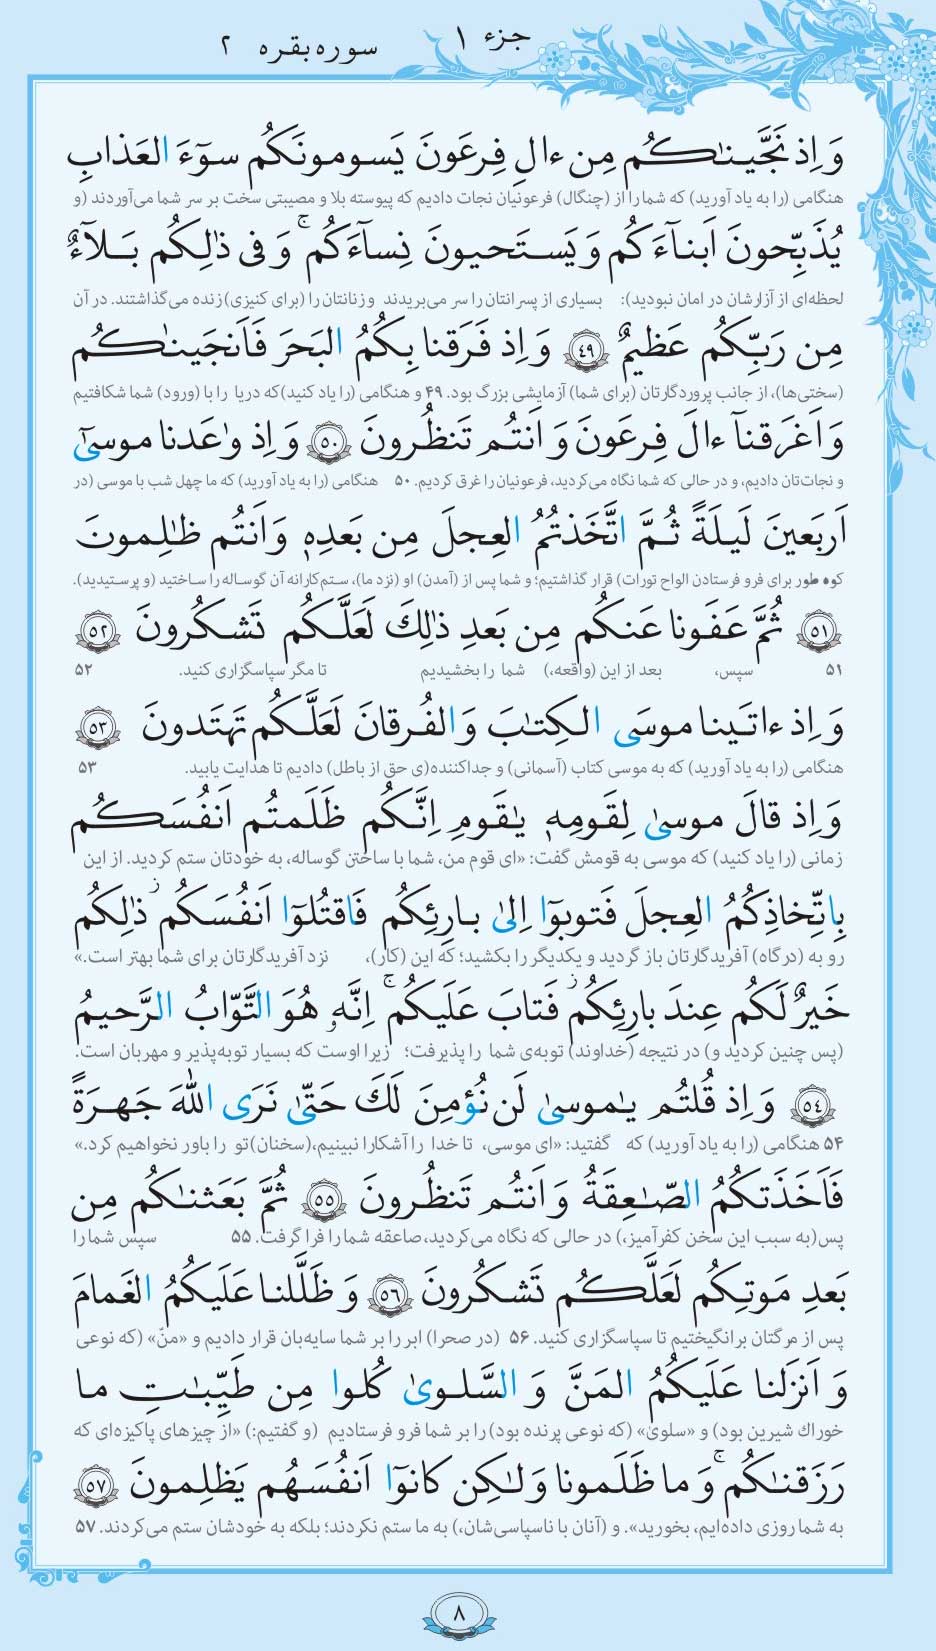 جزء ۱
سوره بقره ۲
وَ اِذ نَجَّينٰكُم مِن ءالِ فِرعَونَ يَسومونَكُم سوٓءَ العَذابِ
هنگامی (را به یاد آورید) که شما را از (چنگال) فرعونیان نجات دادیم که پیوسته بلا و مصیبتی سخت بر سر شما می‌آوردند (و
يُذَبِّحونَ اَبنآءَكُم وَ يَستَحيونَ نِسآءَكُم ۚ وَ فى ذٰلِكُم بَلآءٌ
لحظه‌ای از آزارشان در امان نبودید): بسیاری از پسرانتان را سر می‌بریدند و زنانتان را (برای کنیزی) زنده می‌گذاشتند. در آن
مِن رَبِّكُم عَظيمٌ ﴿٤٩﴾ وَ اِذ فَرَقنا بِكُمُ البَحرَ فَاَنجَينٰكُم
(سختی‌ها)، از جانب پروردگارتان (برای شما) آزمایشی بزرگ بود. ۴۹ و هنگامی (را یاد کنید) که دریا را با (ورود) شما شکافتیم
وَ اَغرَقنآ ءالَ فِرعَونَ وَ اَنتُم تَنظُرونَ ﴿٥٠﴾ وَ اِذ وٰعَدنا موسىٰٓ
و نجات‌تان دادیم، و در حالی که شما نگاه می‌کردید، فرعونیان را غرق کردیم. ۵۰ هنگامی (را به یاد آورید) که ما چهل شب با موسی (در
اَربَعينَ لَيلَةً ثُمَّ اتَّخَذتُمُ العِجلَ مِن بَعدِهٖ وَ اَنتُم ظٰلِمونَ
کوه طور برای فرو فرستادن الواح تورات) قرار گذاشتیم؛ و شما پس از (آمدن) او (نزد ما)، ستم‌کارانه آن گوساله را ساختید (و پرستیدید).
﴿٥١﴾ ثُمَّ عَفَونا عَنكُم مِن بَعدِ ذٰلِكَ لَعَلَّكُم تَشكُرونَ ﴿٥٢﴾
۵۱ سپس، بعد از این (واقعه،) شما را بخشیدیم تا مگر سپاسگزاری کنید. ۵۲
وَ اِذ ءاتَينا موسَى الكِتٰبَ وَ الفُرقانَ لَعَلَّكُم تَهتَدونَ ﴿٥٣﴾
هنگامی (را به یاد آورید) که به موسی کتاب (آسمانی) و جداکننده(ی حق از باطل) دادیم تا هدایت یابید. ۵۳
وَ اِذ قالَ موسىٰ لِقَومِهٖ يٰقَومِ اِنَّكُم ظَلَمتُم اَنفُسَكُم
زمانی (را یاد کنید) که موسی به قومش گفت: «ای قوم من، شما با ساختن گوساله، به خودتان ستم کردید. از این
بِاتِّخاذِكُمُ العِجلَ فَتوبوٓا اِلىٰ بارِئِكُم فَاقتُلوٓا اَنفُسَكُم ز ذٰلِكُم
رو به (درگاه) آفریدگارتان باز گردید و یکدیگر را بکشید؛ که این (کار)، نزد آفریدگارتان برای شما بهتر است.»
خَيرٌ لَكُم عِندَ بارِئِكُم ز فَتابَ عَلَيكُم ۚ اِنَّهٗ هُوَ التَّوّابُ الرَّحيمُ
(پس چنین کردید و) در نتیجه (خداوند) توبه‌ی شما را پذیرفت؛ زیرا اوست که بسیار توبه‌پذیر و مهربان است.
﴿٥٤﴾ وَ اِذ قُلتُم يٰموسىٰ لَن نُؤمِنَ لَكَ حَتّىٰ نَرَى اللّٰهَ جَهرَةً
۵۴ هنگامی (را به یاد آورید) که گفتید: «ای موسی، تا خدا را آشکارا نبینیم، (سخنان) تو را باور نخواهیم کرد.»
فَاَخَذَتكُمُ الصّٰعِقَةُ وَ اَنتُم تَنظُرونَ ﴿٥٥﴾ ثُمَّ بَعَثنٰكُم مِن
پس (به سبب این سخن کفرآمیز،) در حالی که نگاه می‌کردید، صاعقه شما را فرا گرفت. ۵۵ سپس شما را
بَعدِ مَوتِكُم لَعَلَّكُم تَشكُرونَ ﴿٥٦﴾ وَ ظَلَّلنا عَلَيكُمُ الغَمامَ
پس از مرگتان برانگیختیم تا سپاسگزاری کنید. ۵۶ (در صحرا) ابر را بر شما سایه‌بان قرار دادیم و «منّ» (که نوعی
وَ اَنزَلنا عَلَيكُمُ المَنَّ وَ السَّلوىٰ كُلوا مِن طَيِّبٰتِ ما
خوراک شیرین بود) و «سلوی» (که نوعی پرنده بود) را بر شما فرو فرستادیم (و گفتیم:) «از چیزهای پاکیزه‌ای که
رَزَقنٰكُم ۚ وَ ما ظَلَمونا وَ لٰكِن كانوٓا اَنفُسَهُم يَظلِمونَ ﴿٥٧﴾
به شما روزی داده‌ایم، بخورید». و (آنان با ناسپاسی‌شان،) به ما ستم نکردند؛ بلکه به خودشان ستم می‌کردند. ۵۷
۸